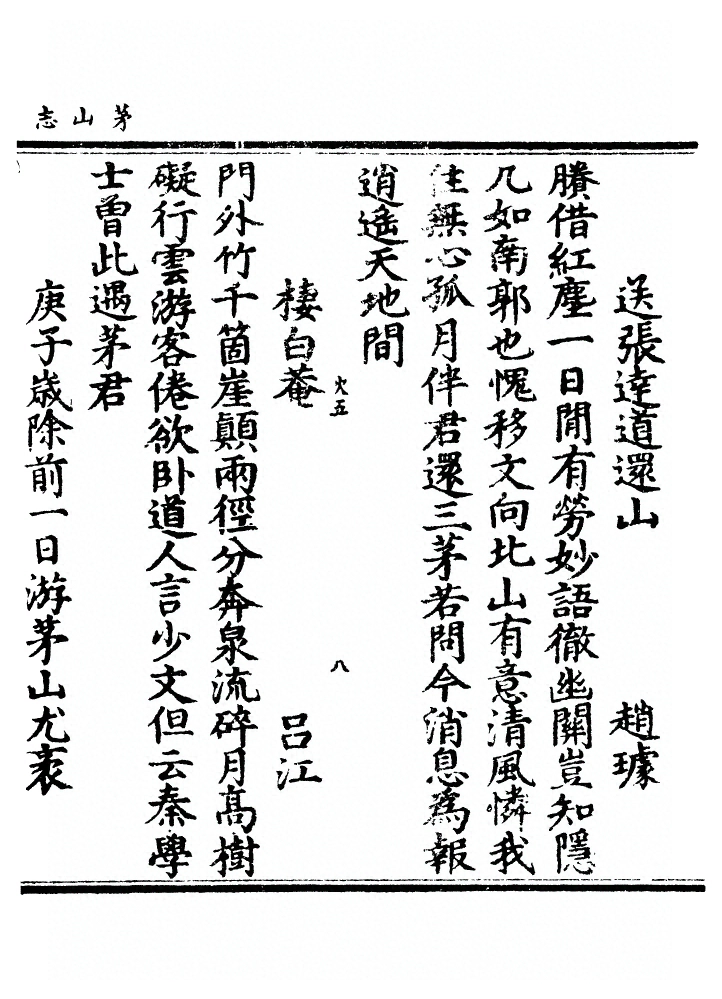 茅山志
送張達道還山　趙璩
賸借紅塵一日閒有勞妙語徹幽關豈知隱
几如南郭也愧移文向北山有意清風憐我
住無心孤月伴君還三茅若問今消息爲報
逍遥天地間
棲白菴　呂江
火五　八
門外竹千箇崖顛兩徑分奔泉流碎月高樹
礙行雲游客倦欲卧道人言少文但云秦學
士曾此遇茅君
庚子歲除前一日游茅山尤袤